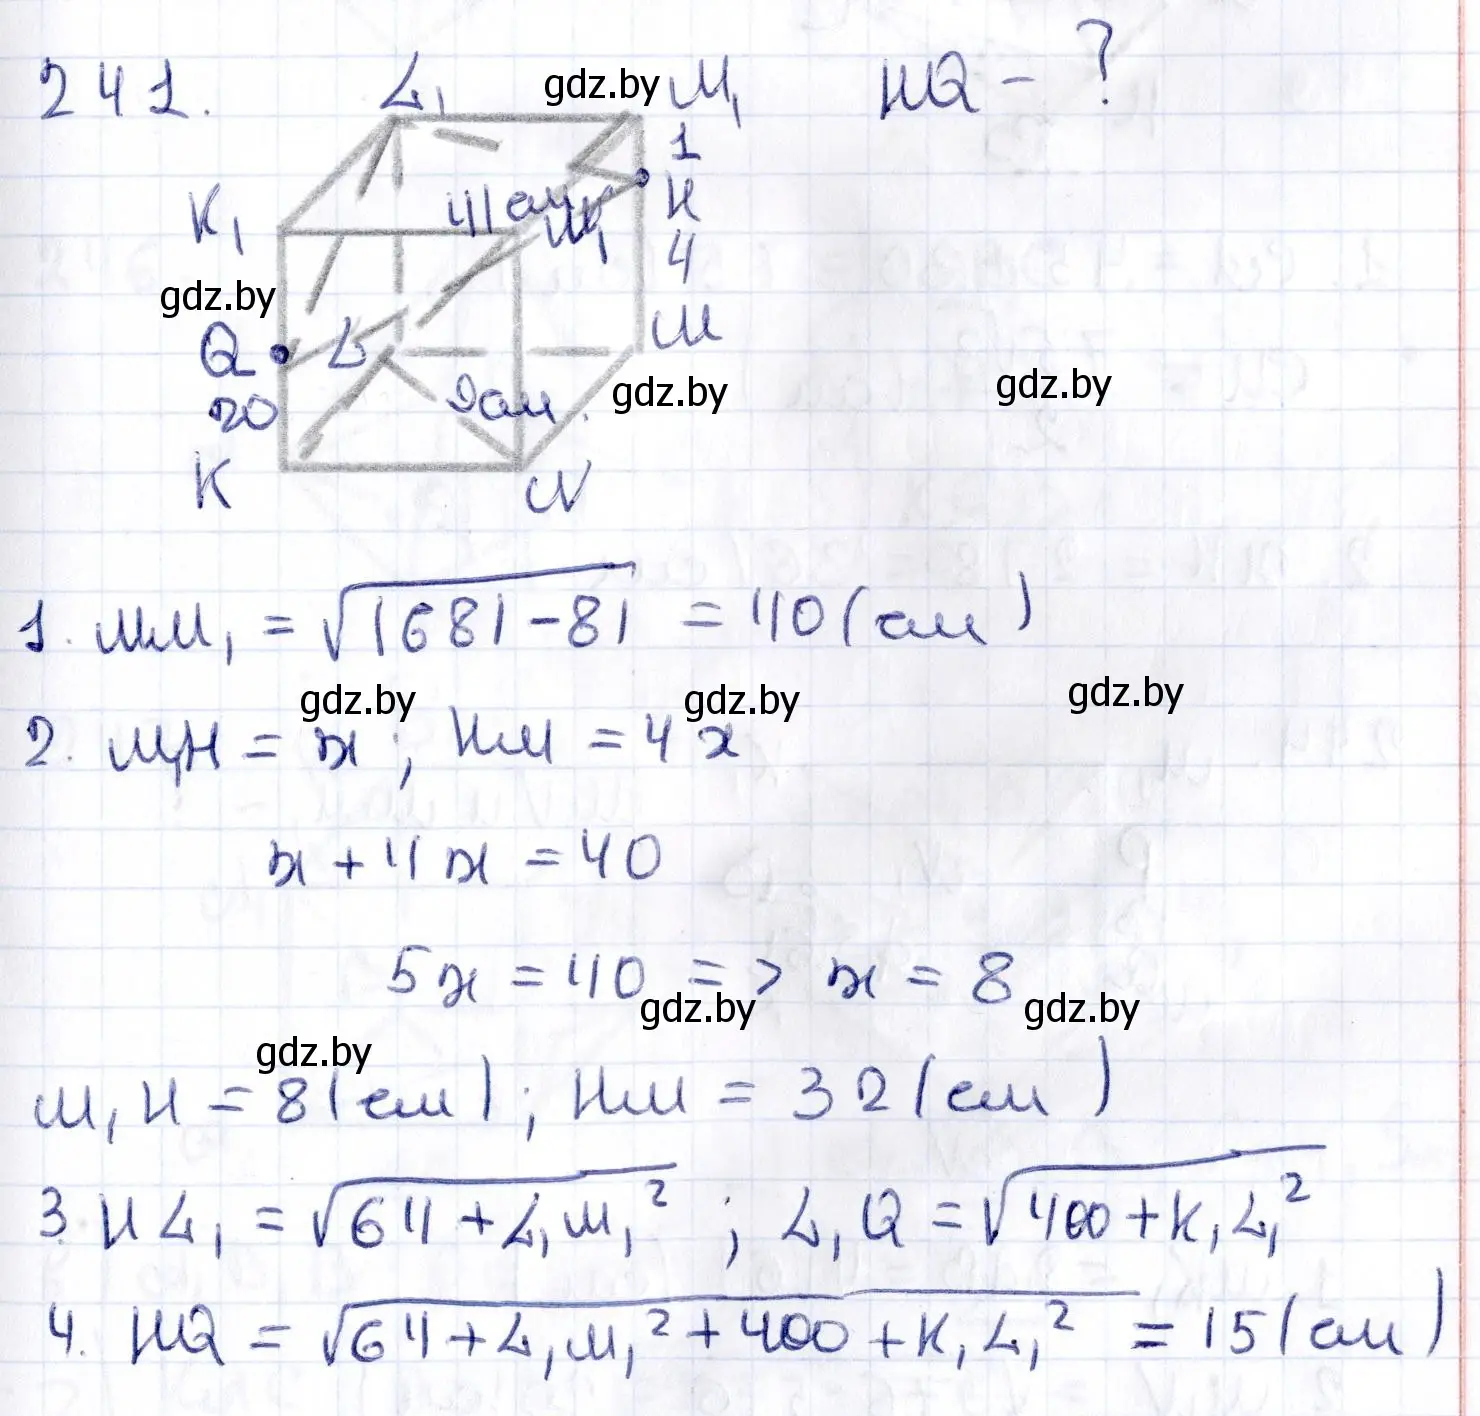 241. L₁ gdz.by M₁ HQ - ?
1
K₁ 41 см N₁ H
4
gdz.by
Q L M
20 9 см gdz.by gdz.by
K N
1. MM₁ = √1681-81 = 40 (см)
gdz.by gdz.by gdz.by
2. M₁H = x; HM = 4x
x + 4x = 40
5x = 40 => x = 8
gdz.by gdz.by
gdz.by
M₁H = 8 (см); HM = 32 (см)
3. HL₁ = √64 + L₁M₁²; L₁Q = √400 + K₁L₁²
4. HQ = √64 + L₁M₁² + 400 + K₁L₁² = 15 (см)